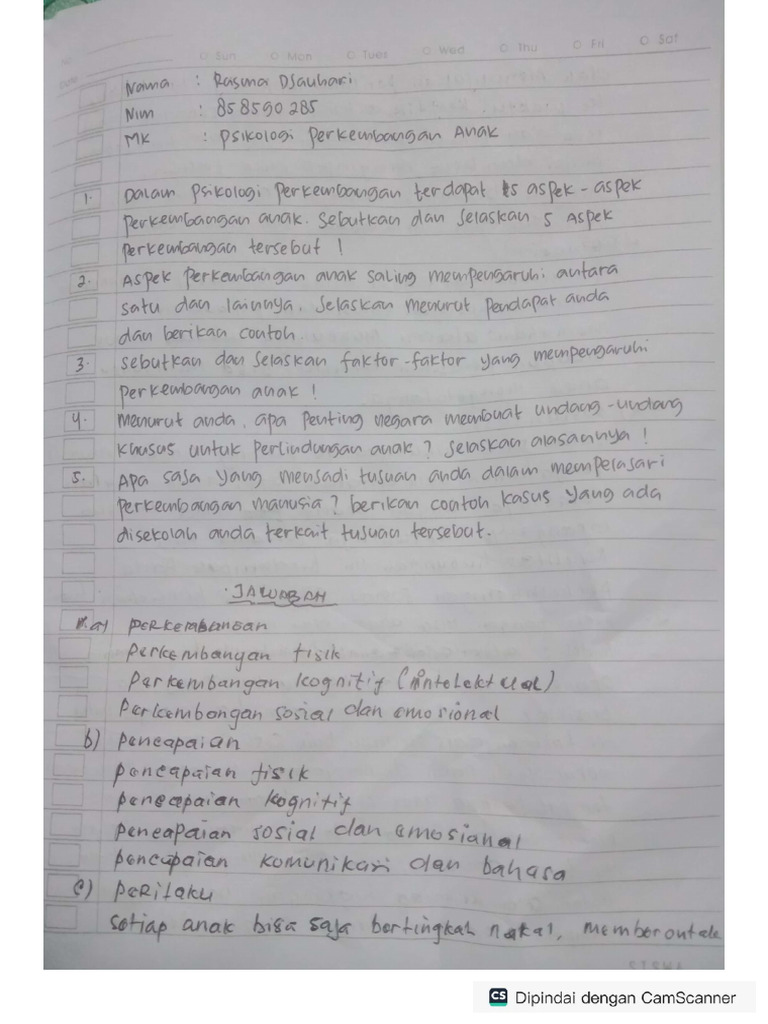 Sun Mon Tues Wed Thu Fri Sat
Nama : Rasma Djauhari
Nim : 858590285
MK : Psikologi Perkembangan Anak
1. Dalam psikologi perkembangan terdapat 5 aspek-aspek
perkembangan anak. Sebutkan dan jelaskan 5 Aspek
perkembangan tersebut !
2. Aspek perkembangan anak saling mempengaruhi antara
satu dan lainnya. Jelaskan menurut pendapat anda
dan berikan contoh.
3. sebutkan dan jelaskan faktor-faktor yang mempengaruhi
perkembangan anak !
4. menurut anda, apa penting negara membuat undang-undang
khusus untuk perlindungan anak ? Jelaskan alasannya !
5. Apa saja yang menjadi tujuan anda dalam mempelajari
perkembangan manusia ? berikan contoh kasus yang ada
disekolah anda terkait tujuan tersebut.
JAWABAN
a) PERKEMBANGAN
Perkembangan fisik
Perkembangan kognitif (intelektual)
Perkembangan sosial dan emosional
b) pencapaian
pencapaian fisik
pencapaian kognitif
pencapaian sosial dan emosianal
pencapaian komunikasi dan bahasa
c) perilaku
setiap anak bisa saja bertingkah nakal, memberontak
CS Dipindai dengan CamScanner